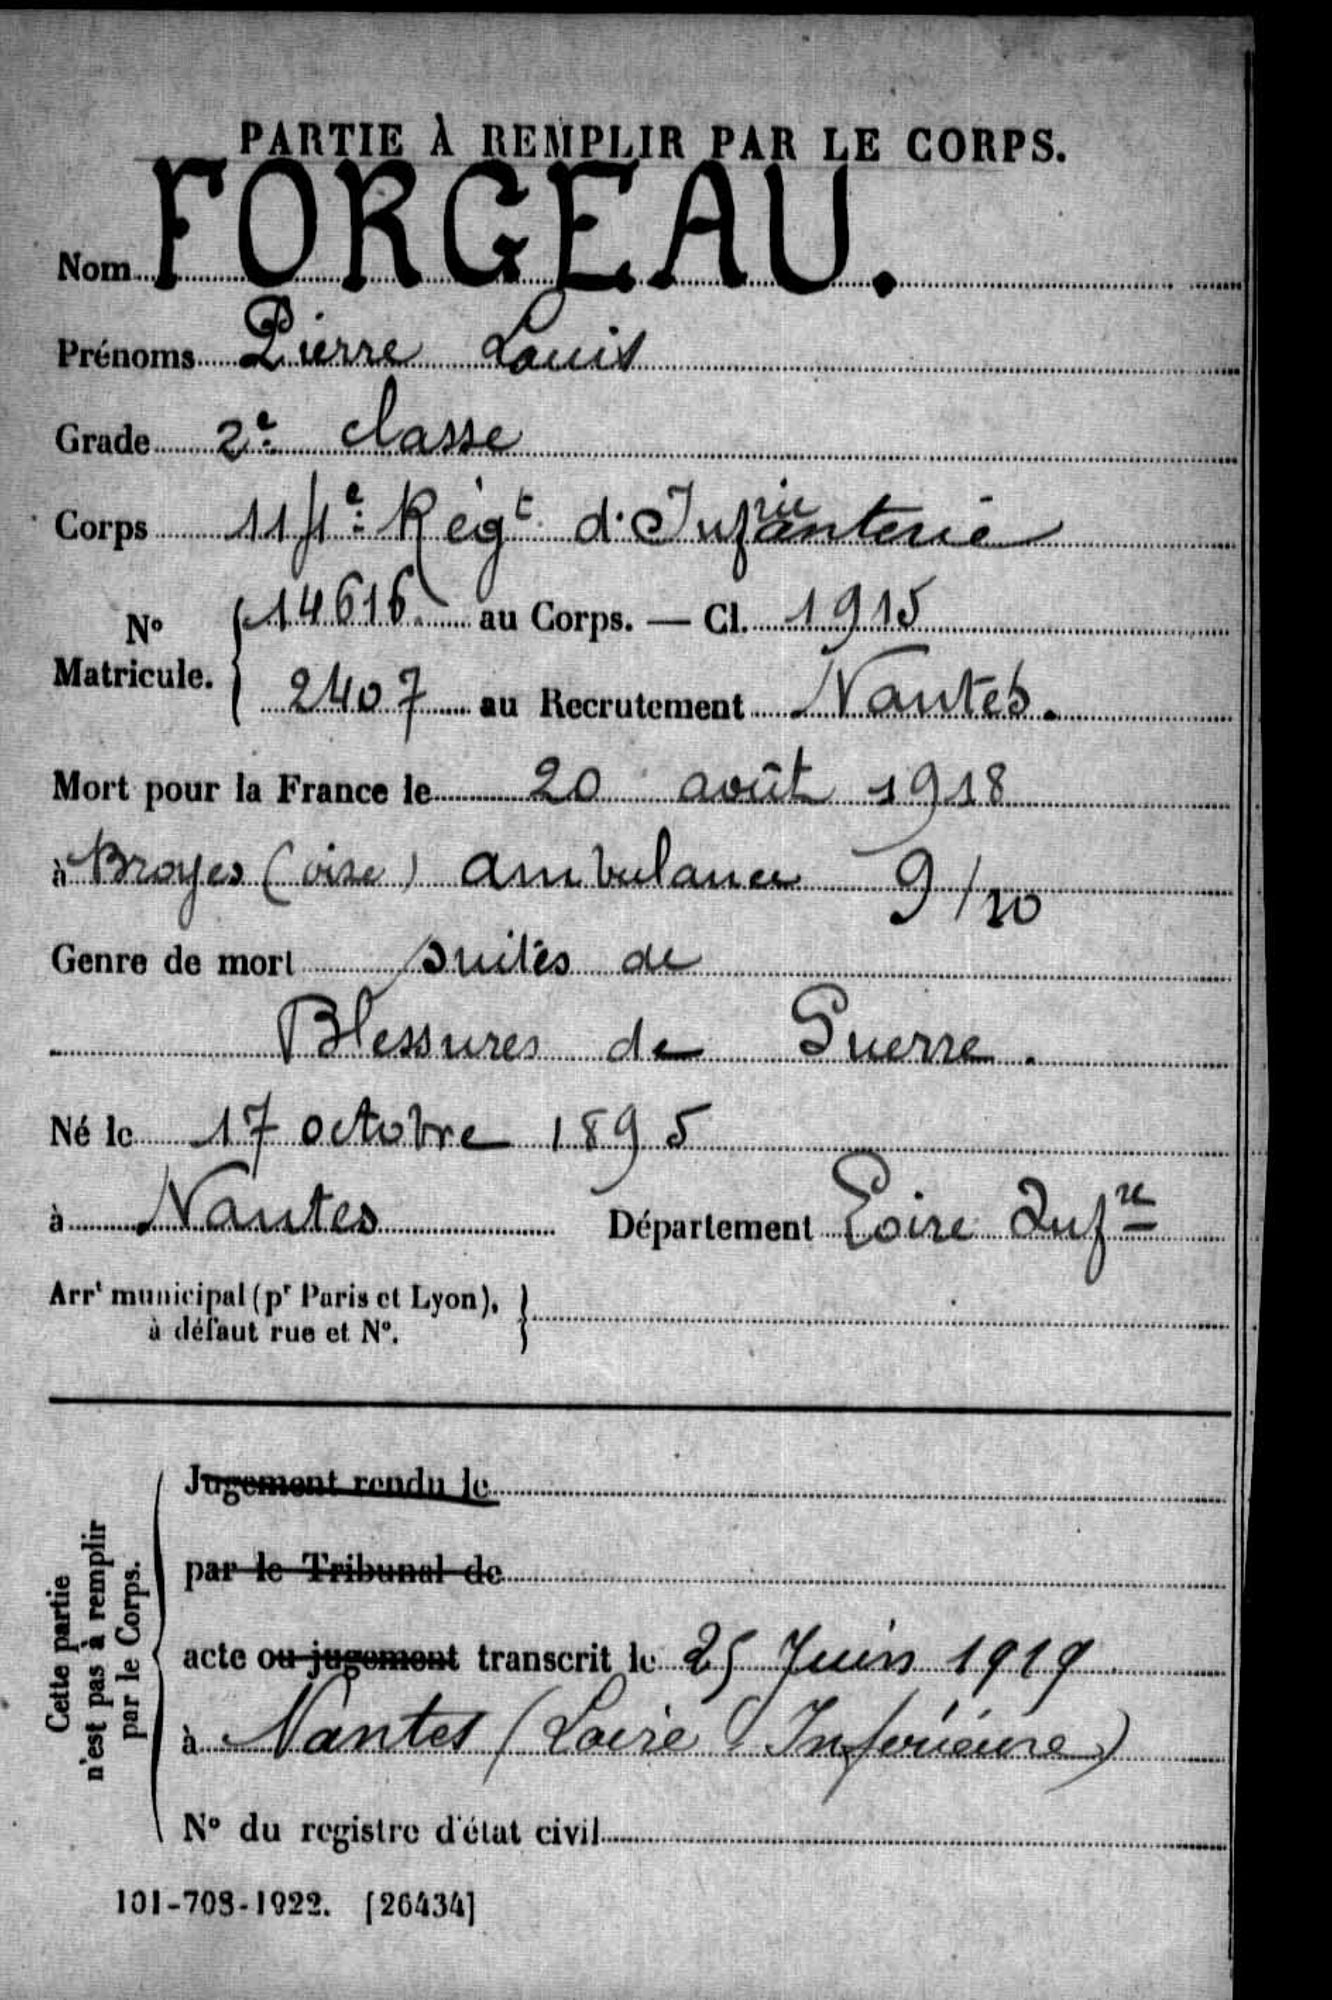 PARTIE À REMPLIR PAR LE CORPS.
Nom FORGEAU.
Prénoms Pierre Louis
Grade 2e classe
Corps Régt d'Infanterie
No Matricule. { 14616 au Corps. — Cl. 1915
2407 au Recrutement Nantes.
Mort pour la France le 20 août 1918
à Broyes (oise) ambulance 9/20
Genre de mort suites de
Blessures de Guerre.
Né le 17 octobre 1895
à Nantes Département Loire Infre
Arrt municipal (pr Paris et Lyon), }
à défaut rue et No.
Cette partie
n'est pas à remplir
par le Corps.
Jugement rendu le
par le Tribunal de
acte ou jugement transcrit le 25 Juin 1919
à Nantes (Loire Inférieure)
No du registre d'état civil
101-708-1922. [26434]